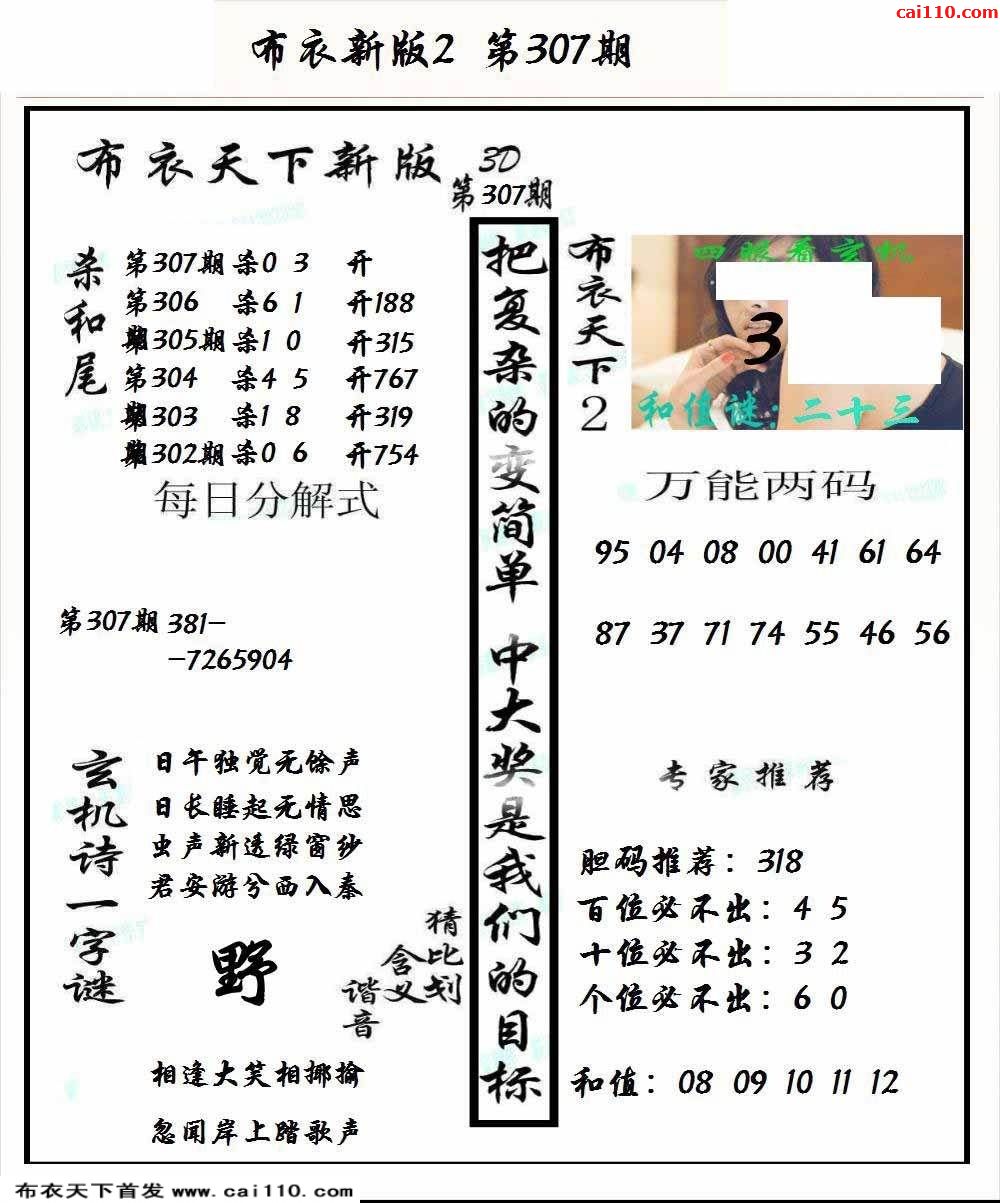 cai110.com
布衣新版2 第307期
布衣天下新版
3D
第307期
杀和尾
第307期 杀0 3 开
第306 杀6 1 开188
期305期 杀1 0 开315
第304 杀4 5 开767
期303 杀1 8 开319
第302期 杀0 6 开754
每日分解式
第307期 381-
-7265904
玄机诗一字谜
日午独觉无馀声
日长睡起无情思
虫声新透绿窗纱
君安游兮西入秦
野
猜比划
含义
谐音
相逢大笑相揶揄
忽闻岸上踏歌声
把复杂的变简单 中大奖是我们的目标
布衣天下2
四眼看玄机
3
和值谜:二十三
万能两码
95 04 08 00 41 61 64
87 37 71 74 55 46 56
专家推荐
胆码推荐：318
百位必不出：4 5
十位必不出：3 2
个位必不出：6 0
和值：08 09 10 11 12
布衣天下首发 www.cai110.com